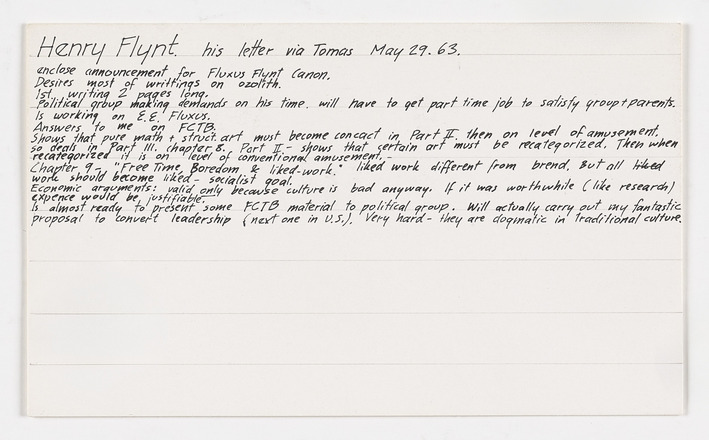 Henry Flynt. his letter via Tomas May 29. 63.
enclose announcement for Fluxus Flynt Canon.
Desires most of writtings on ozolith.
1st. writing 2 pages long.
Political group making demands on his time. will have to get part time job to satisfy group + parents.
Is working on E.E. Fluxus.
Answers to me on FCTB.
Shows that pure math + struct. art must become concact in Part II. then on level of amusement.
so deals in Part III. chapter 8. Part II - shows that certain art must be recategorized. Then when
recategorized it is on level of conventional amusement. -
Chapter 9 - "Free Time, Boredom & liked-work." liked work different from brend. But all liked
work should become liked - socialist goal.
Economic arguments: valid only because culture is bad anyway. If it was worthwhile (like research)
expence would be justifiable.
Is almost ready to present some FCTB material to political group. Will actually carry out my fantastic
proposal to convert leadership (next one in U.S.). Very hard - they are dogmatic in traditional culture.